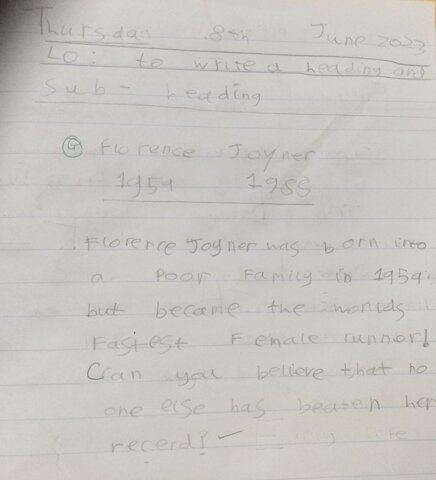 Thursday 8th June 2023
LO: to write a heading and
Sub-heading
G Florence Joyner
1959 1988
Florence Joyner was born into
a Poor Family in 1959
but became the worlds
Fastest Female runner!
Can you believe that no
one else has beaten her
recerd?